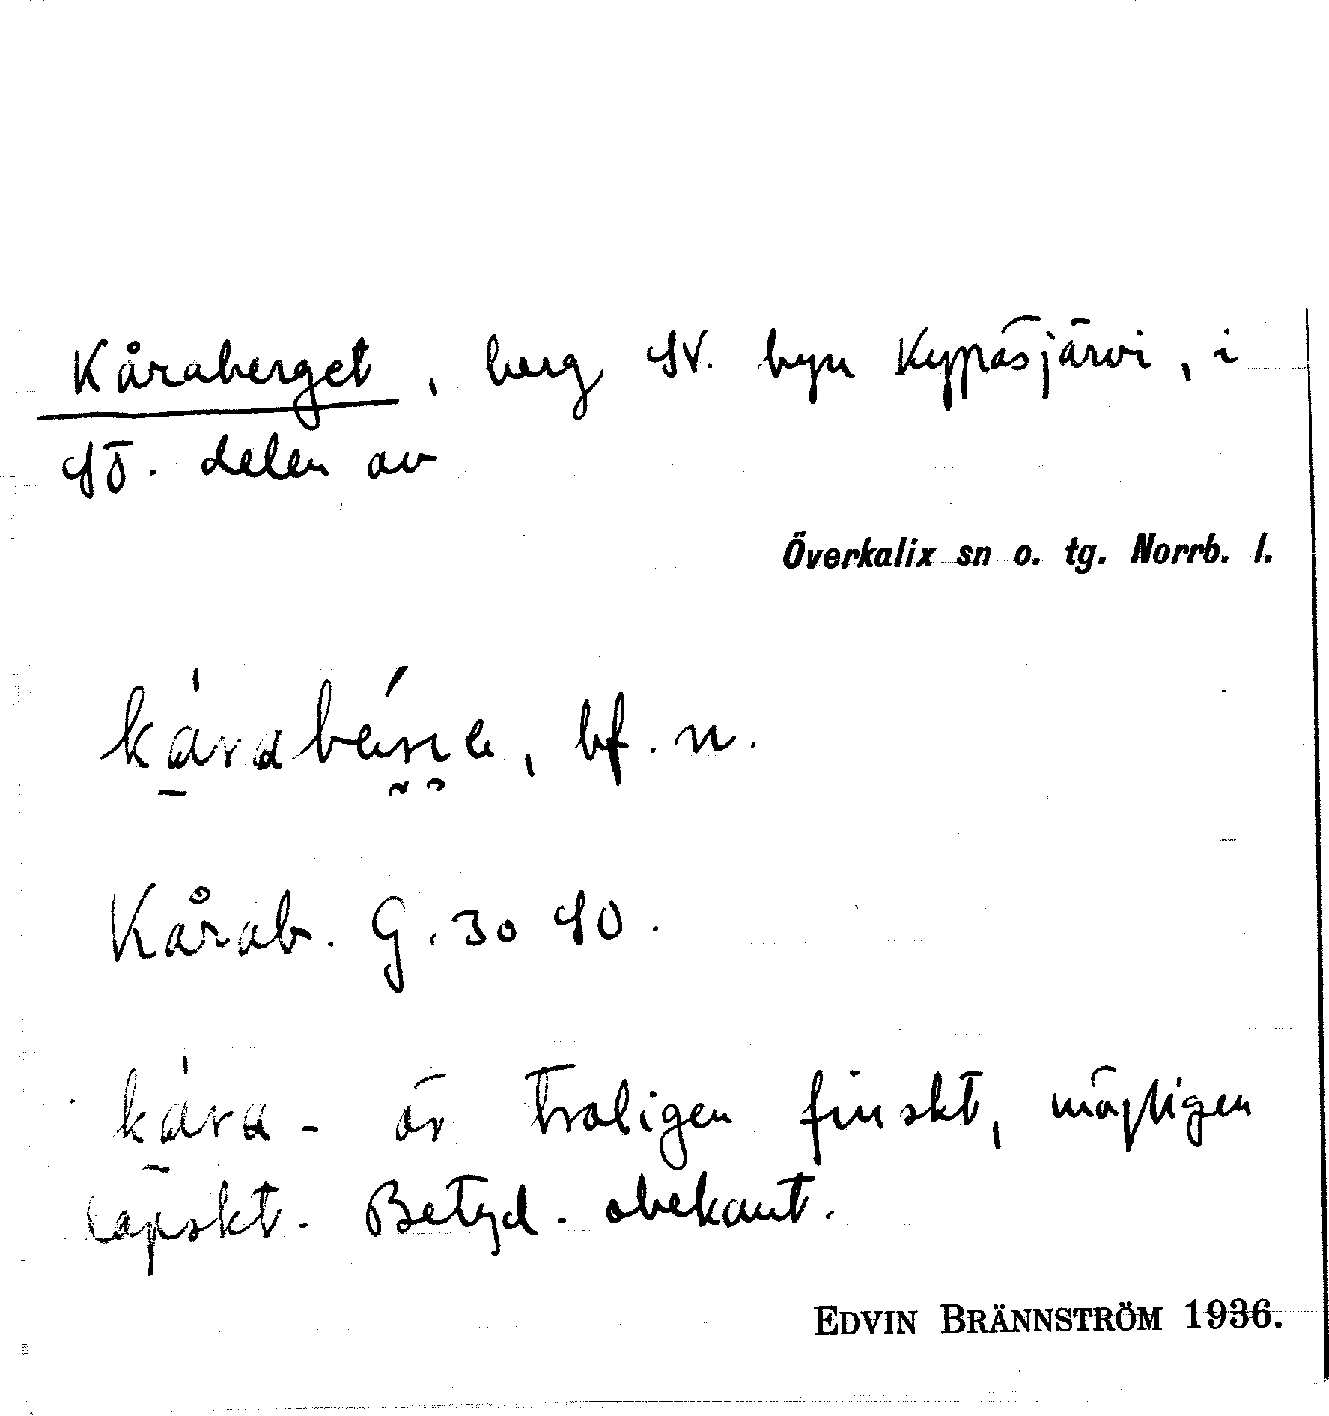 Kåraberget, berg SV. byn Kypasjärvi, i
SÖ. delen av
Överkalix sn o. tg. Norrb. l.
bf. n.
Kårab. G. 30 SO.
kára- är troligen finskt, möjligen
lapskt. Betyd. obekant.
EDVIN BRÄNNSTRÖM 1936.